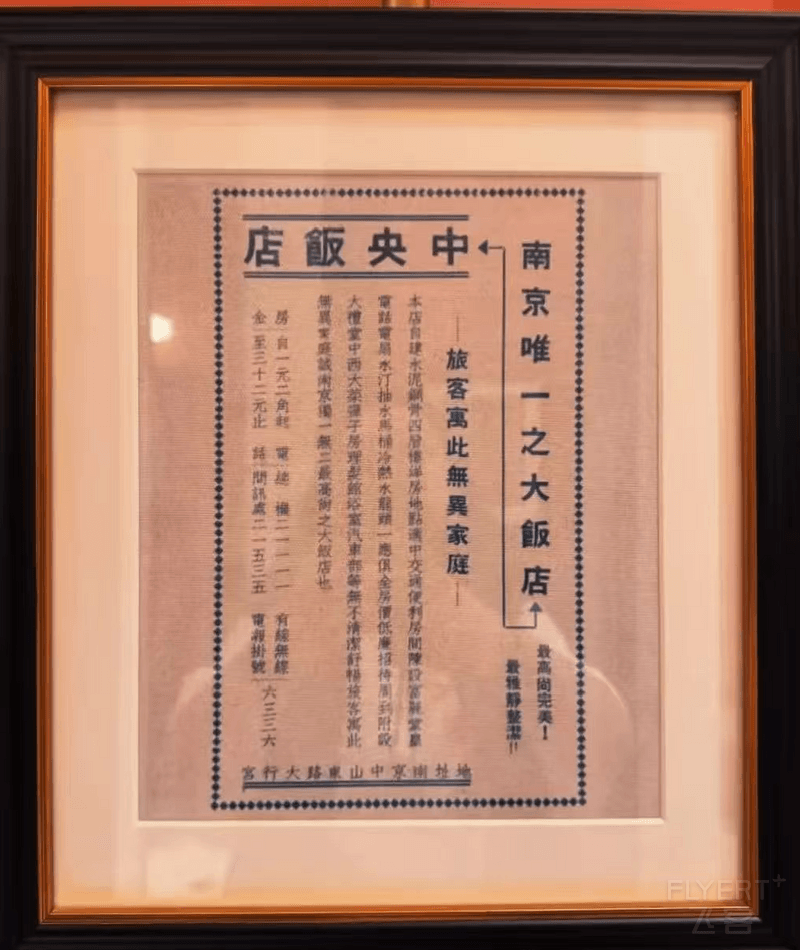 南京唯一之大飯店
最高尚完美！
最雅靜整潔!!
中央飯店
旅客寓此無異家庭
本店自建水泥鋼骨四層樓洋房地點適中交通便利房間陳設富麗紫羅
電話電扇水汀抽水馬桶冷熱水龍頭一應俱全房價低廉招待周到附設
大禮堂中西大菜彈子房理髮館浴室汽車部等無不清潔舒暢旅客寓此
無異家庭誠南京獨一無二最高尚之大飯店也
房金 自一元二角起 至三十二元止
電話 總機二一一一一 問訊處二一五三五
有線無線電報掛號 六三三六
地址南京中山東路大行宮
FLYERT+